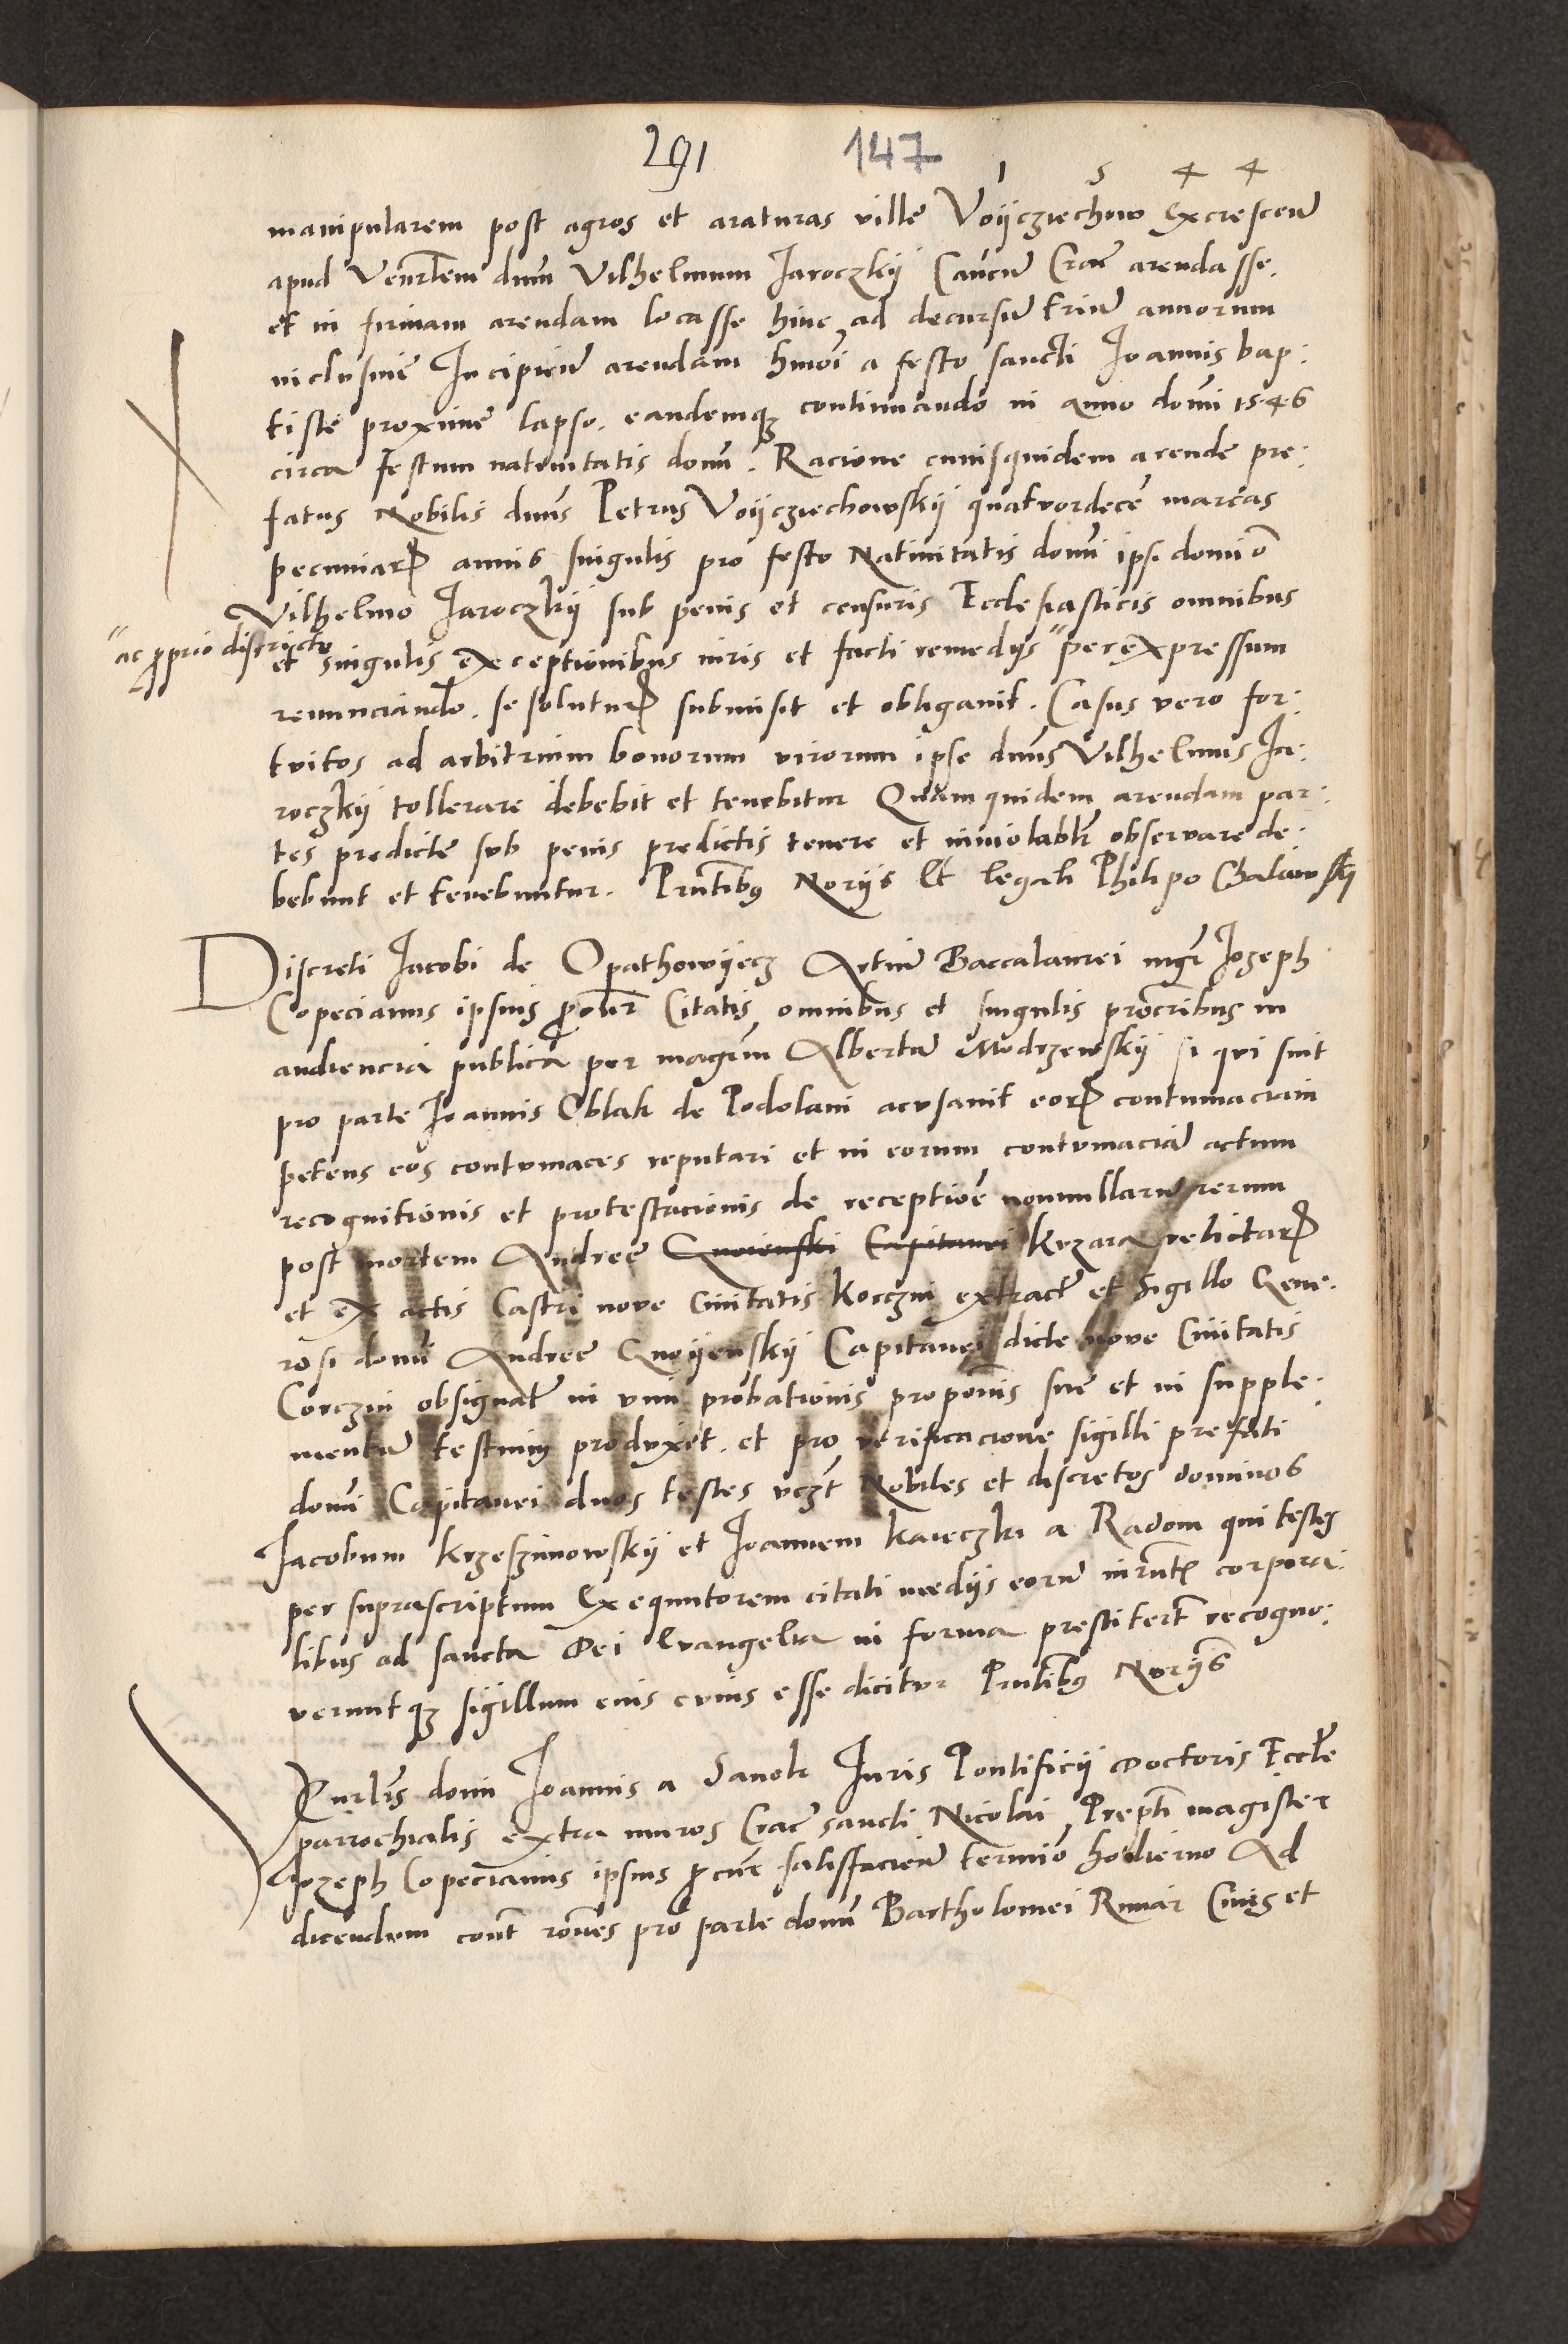 291 147
1 5 4 4
manipularem post agros et araturas ville Voijcziechow Excrescen̄
apud Venr̄lem dnm̄ Vilhelmum Jaroczkij Can̄cum Crac̄ arendasse.
et in firmam arendam locasse hinc ad decursum trium annorum
inclusive Incipien̄ arendam hmoī a festo sancti Joannis bap:
tiste proxime lapso. eandemqz continuando in anno domī 1546
circa festum nativitatis domī. Racione cuiusquidem arende pre:
fatus Nobilis dnūs Petrus Voijcziechowskij quatvordecem marcas
pecuniar annis singulis pro festo Nativitatis domī ipsi domīo
Vilhelmo Jaroczkij sub penis et censuris Ecclesiasticis omnibus
"ac proprio districto
et singulis exceptionibus iuris et facti remedijs "per expressum
renunciando. se solutur submisit et obligavit. Casus vero for:
tvitos ad arbitrium bonorum virorum ipse dnūs Vilhelmus Ja:
roczkij tollerare debebit et tenebitur Quam quidem arendam par:
tes predicte svb penis predictis tenere et inviolabl̄r observare de:
bebunt et tenebuntur. Pn̄tibus Norijs Et legali Philipo Chalawskij
Discreti Jacobi de Opathowijecz Artium Baccalaurei mgr̄ Jozeph
Copecianus ipsius procur̄ Citatis omnibus et singulis procr̄ibus in
audiencia publica per magr̄m Albertum Modrzewskij si qui sint
pro parte Joannis Oblak de Podolani acvsavit eor contumaciam
petens eos contvmaces reputari et in eorum contvmaciam actum
recognitionis et protestacionis de receptioē nonnullarum rerum
post mortem Andree Gnoienski Capitanei Krzara relictar
et ex actis Castri nove Civitatis Korczin extract̄ et Sigillo Gene:
rosi domī Andree Gnoijenskij Capitanei dicte nove Civitatis
Corczin obsignat̄ in vim probationis proponis sue et in supple:
mentum testium prodvxit. et pro verificacione sigilli prefati
domī Capitanei duos testes vczt Nobiles et discretos dominos
Jacobum Krzeszimowskij et Joannem Kaieczki a Radom qui testes
per suprascriptum Exequutorem citati medijs eorum iurn̄t corpora:
libus ad sancta Dei Evangelia in forma prestitert recogno:
veruntqz sigillum eius cvius esse dicitvr Pn̄tibus Norijs
Venrlis domī Joannis a Sanok Juris Pontificij Doctoris Eccl̄e
parrochialis extra muros Crac̄ sancti Nicolai Prepti magister
Jozeph Copecianus ipsius procur̄ satisfacien̄ termīo hodierno Ad
dicendvm cont̄ roēs pro parte domī Bartholomei Rimar Civis et